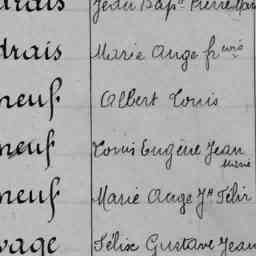 drais Jean Bapte Pierre Marie
drais Marie Ange fcois
neuf Albert Louis
neuf Louis Eugène Jean
Marie
neuf Marie Ange Jh Félix
vage Félix Gustave Jean